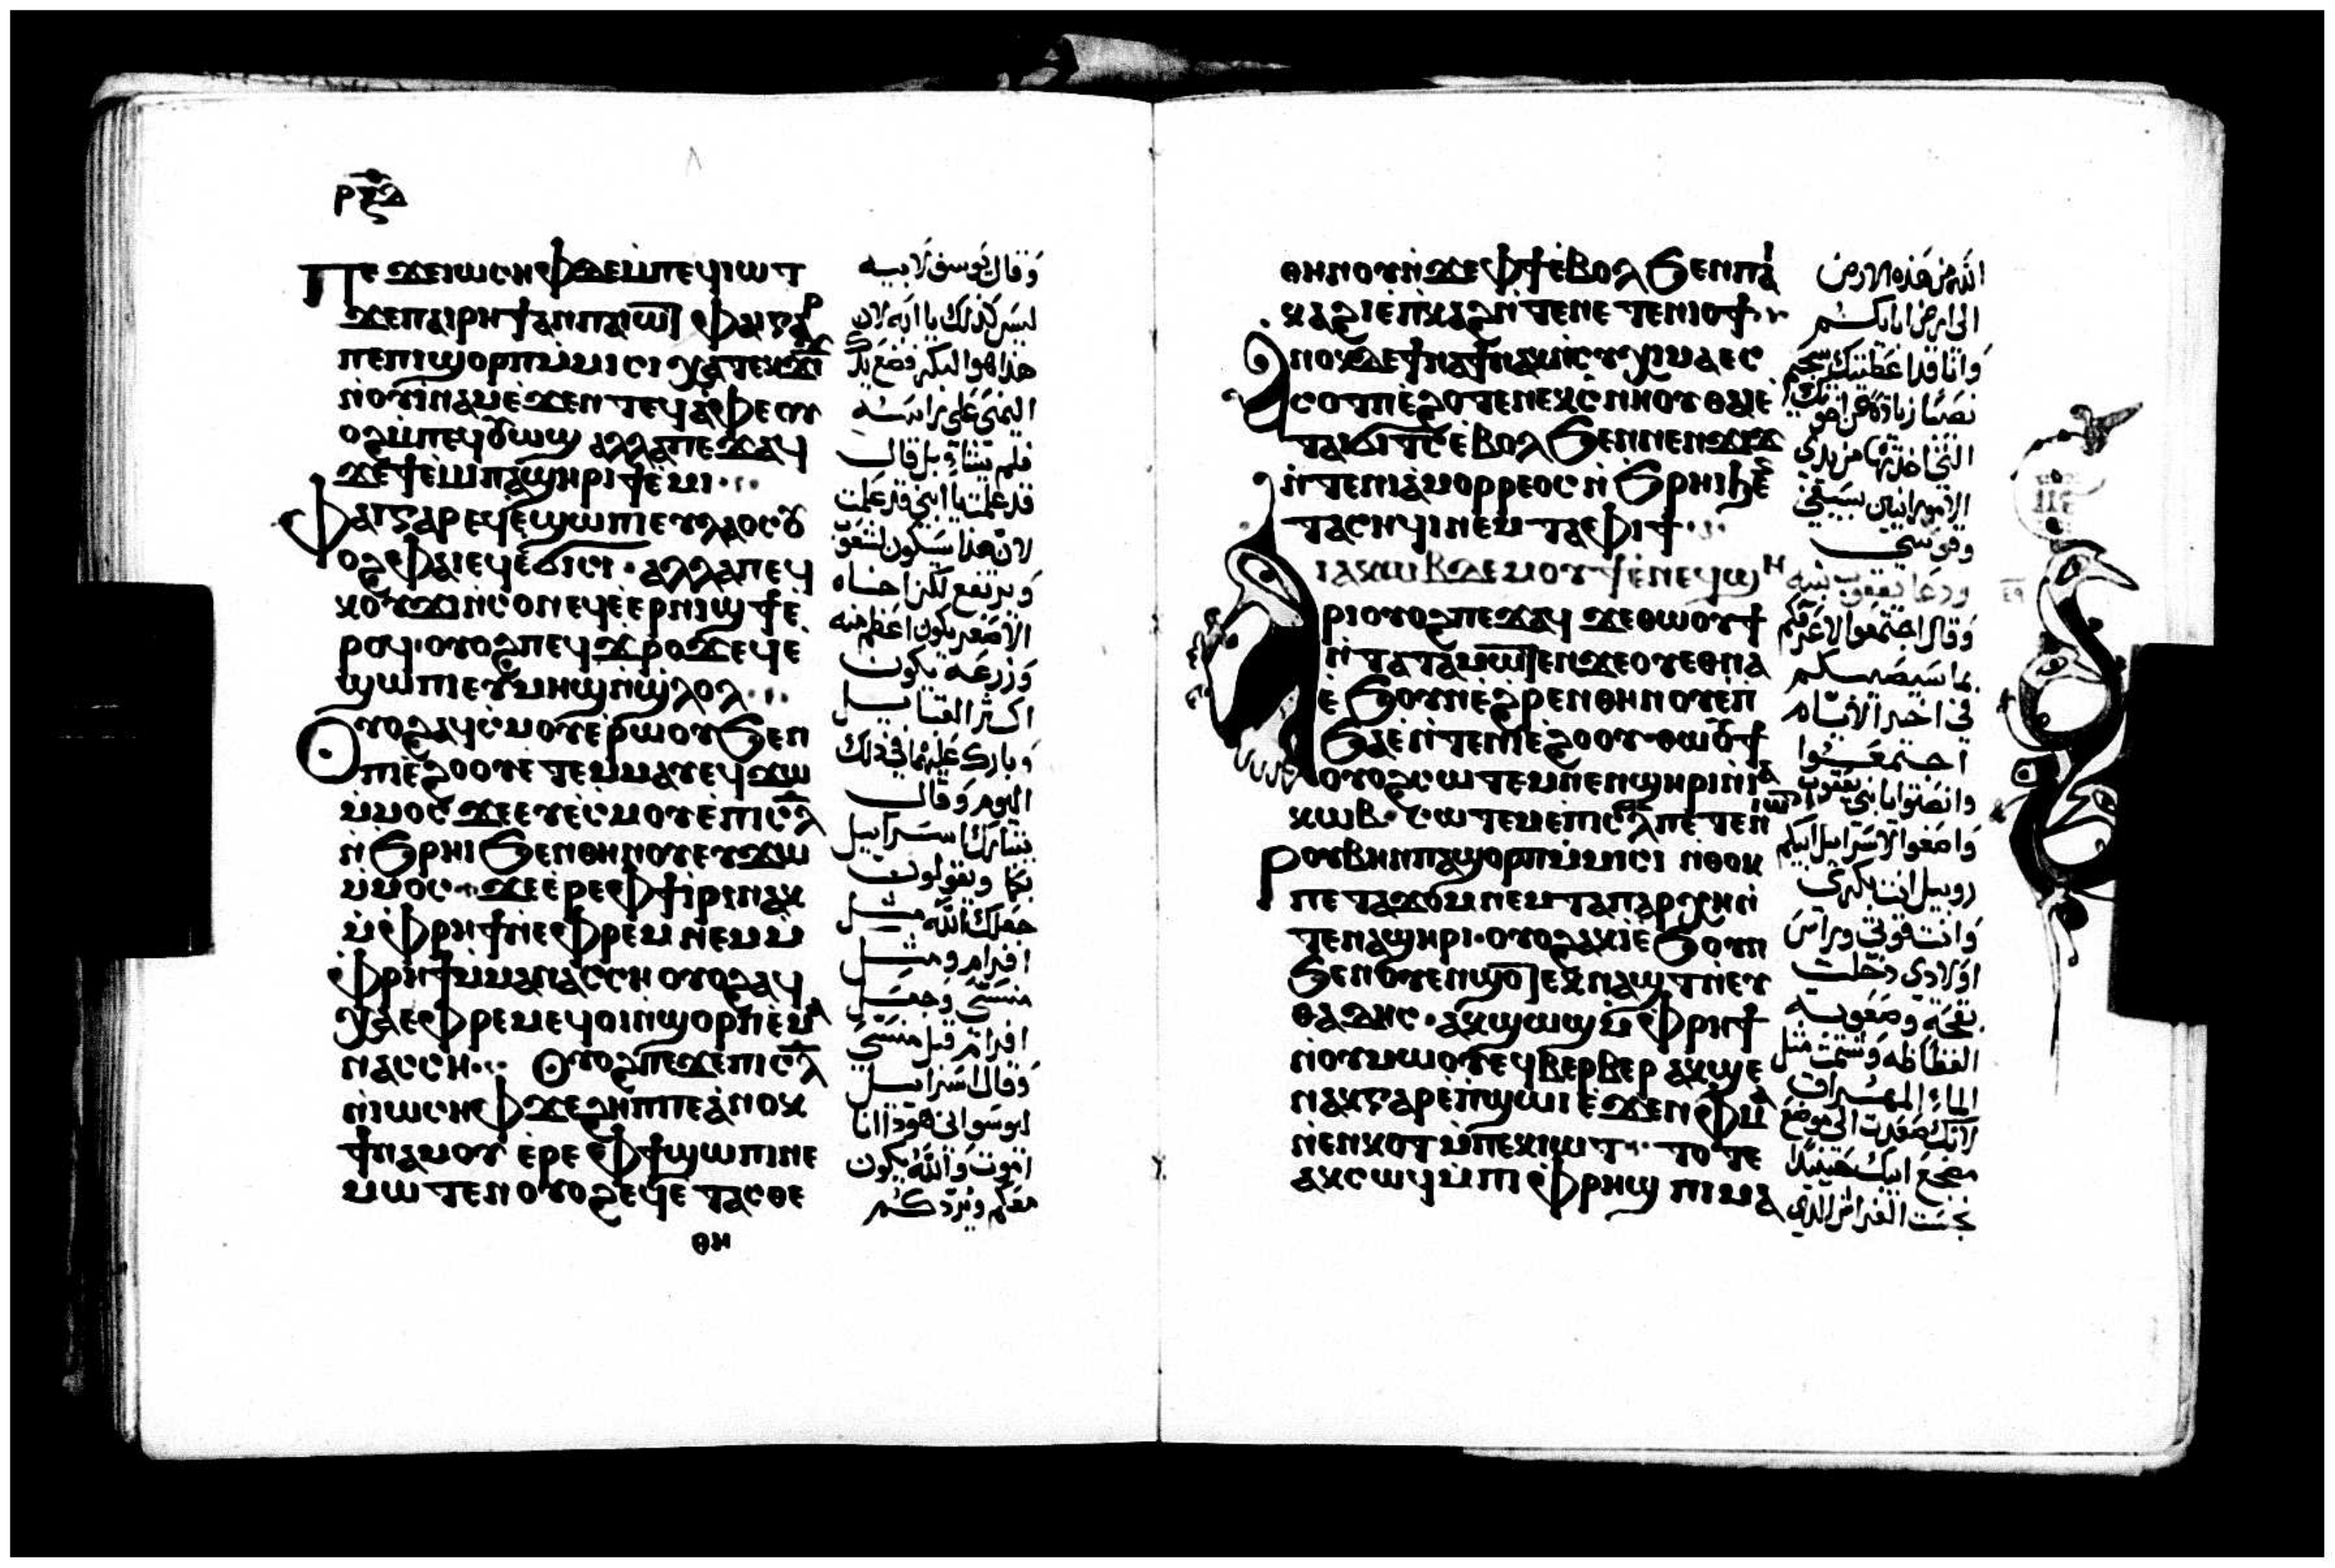 ⲣⲝⲇ
ⲡⲉϫⲉⲓⲱⲥⲏⲫϫⲉⲙⲡⲉϥⲓⲱⲧ
ϫⲉⲡⲁⲓⲣⲏϯⲁⲛⲡⲁⲓⲱⲧ ⲫⲁⲓⲅⲁⲣ
ⲡⲉⲡⲓϣⲟⲣⲡⲙⲙⲓⲥⲓ ⲭⲁⲧⲉⲕϫⲓϫ
ⲛⲟⲩⲓⲛⲁⲙⲉϫⲉⲛⲧⲉϥⲁⲫⲉⲟⲩ
ⲟϩⲙⲡⲉϥⲟⲩⲱϣ ⲁⲗⲗⲁⲡⲉϫⲁϥ
ϫⲉϯⲉⲙⲓⲡⲁϣⲏⲣⲓϯⲉⲙⲓ
ⲫⲁⲓⲅⲁⲣⲉϥⲉϣⲱⲡⲓⲉⲩⲗⲁⲟⲥⲟⲩ
ⲟϩⲫⲁⲓⲉϥⲉϭⲓⲥⲓ ⲁⲗⲗⲁⲡⲉϥ
ⲕⲟⲩϫⲓⲛⲥⲟⲛⲉϥⲉⲉⲣⲛⲓϣϯⲉ
ⲣⲟϥ ⲟⲩⲟϩⲡⲉϥϫⲣⲟϫⲉϥⲉ
ϣⲱⲡⲓⲉⲩⲙⲏϣⲛϣⲗⲟⲗ
ⲟⲩⲟϩⲁϥⲥⲙⲟⲩⲉⲣⲱⲟⲩϧⲉⲛ
ⲡⲓⲉϩⲟⲟⲩⲉⲧⲉⲙⲙⲁⲩⲉϥϫⲱ
ⲙⲙⲟⲥ ϫⲉⲉⲩⲉⲥⲙⲟⲩⲉⲡⲓⲥⲗ
ⲛϧⲣⲏⲓϧⲉⲛⲑⲏⲛⲟⲩⲉⲩϫⲱ
ⲙⲙⲟⲥ ϫⲉⲉⲣⲉⲫϯⲓⲣⲓⲛⲁⲕ
ⲙⲫⲣⲏϯⲛⲉⲫⲣⲉⲙ ⲛⲉⲙⲙ
ⲫⲣⲏϯⲙⲙⲁⲛⲁⲥⲥⲏ ⲟⲩⲟϩⲁϥ
ⲭⲁⲉⲫⲣⲉⲙⲉϥⲟⲓⲛϣⲟⲣⲡⲉⲙⲁ
ⲛⲁⲥⲥⲏ ⲟⲩⲟϩⲡⲉϫⲉⲡⲓⲥⲗ
ⲛⲓⲱⲥⲏⲫϫⲉϩⲏⲡⲡⲉⲁⲛⲟⲕ
ϯⲛⲁⲙⲟⲩ ⲉⲣⲉ ⲫϯϣⲱⲡⲓⲛⲉ
ⲙⲱⲧⲉⲛ ⲟⲩⲟϩⲉϥⲉⲧⲁⲥⲑⲉ
ⲑⲏ
وَقال يوسف لابيه
ليس كذلك يا ابه لان
هذا هو البكر فضع يدك
اليمنى على راسه
فلم يشا بل قال
قد علمت يا ابنى قد علمت
لان هذا سيكون لشعوب
ويرتفع لكن اخاه
الاصغر يكون اعظم منه
وزرعه يكون
اكثر القبايل
وبارك عليهما فى ذلك
اليوم وقال
يتبارك اسراييل
بكما ويقولون
جعلك الله مثل
افرام ومثل
منسى وجعل
افرام قبل منسى
وقال اسراييل
ليوسف انى هوذا انا
اموت والله يكون
معكم ويردكم
ⲑⲏⲛⲟⲩⲛϫⲉⲫϯⲉⲃⲟⲗϧⲉⲛⲡⲁⲓ
ⲕⲁϩⲓⲉⲡⲕⲁϩⲓⲛⲧⲉⲛⲉⲧⲉⲛⲓⲟϯ
ⲁⲛⲟⲕⲇⲉϯⲛⲁϯⲛⲁⲕⲛⲥⲩⲭⲓⲙⲁⲉⲥ
ⲥⲟⲧⲡⲉϩⲟⲧⲉⲛⲉⲕⲥⲛⲏⲟⲩ ⲑⲏⲉ
ⲧⲁⲓϭⲓⲧⲥⲉⲃⲟⲗϧⲉⲛⲛⲉⲛϫⲓϫ
ⲛⲧⲉⲛⲓⲁⲙⲟⲣⲣⲉⲟⲥⲛϧⲣⲏⲓϧⲉⲛ
ⲧⲁⲥⲏϥⲓⲛⲉⲙⲧⲁⲫⲓϯ
ⲓⲁⲕⲱⲃⲇⲉⲙⲟⲩϯⲉⲛⲉϥϣⲏ
ⲣⲓⲟⲩⲟϩⲡⲉϫⲁϥ ϫⲉⲑⲱⲟⲩϯ
ⲛⲧⲁⲧⲁⲙⲱⲧⲉⲛϫⲉⲟⲩⲉⲑⲛⲁ
ⲉϧⲟⲩⲛⲉϩⲣⲉⲛⲑⲏⲛⲟⲩⲉⲡ
ϧⲁⲉⲛⲧⲉⲛⲓⲉϩⲟⲟⲩ ⲑⲱⲟⲩϯ
ⲟⲩⲟϩⲥⲱⲧⲉⲙⲛⲉⲛϣⲏⲣⲓⲛⲓⲁ
ⲕⲱⲃ ⲥⲱⲧⲉⲙⲉⲡⲓⲥⲗⲡⲉⲧⲉⲛⲓⲱⲧ
ⲣⲟⲩⲃⲏⲛⲡⲁϣⲟⲣⲡⲙⲙⲓⲥⲓ ⲛⲑⲟⲕ
ⲡⲉⲧⲁϫⲟⲙⲛⲉⲙⲧⲁⲡⲁⲣⲭⲏⲛ
ⲧⲉⲛⲁϣⲏⲣⲓ ⲟⲩⲟϩⲁⲕⲓⲉϧⲟⲩⲛ
ϧⲉⲛⲟⲩⲉⲛϣⲟⲧⲉⲕⲛⲁϣⲧⲛⲉⲩ
ⲑⲁⲇⲏⲥ ⲁⲕϣⲱϣⲙⲫⲣⲏϯ
ⲛⲟⲩⲙⲱⲟⲩⲉϥⲃⲉⲣⲃⲉⲣ ⲁⲕϣⲉ
ⲛⲁⲕⲅⲁⲣⲉⲡϣⲱⲓⲉϫⲉⲛⲫⲙⲁ
ⲛⲉⲛⲕⲟⲧⲙⲡⲉⲕⲓⲱⲧ ⲧⲟⲧⲉ
ⲁⲕⲥⲱϥⲙⲡⲓⲫⲣⲏϣ ⲡⲓⲙⲁ
الله من هذه الارض
الى ارض ابايكم
وانا قد اعطيتك سجيم
نصيبا زيادة عن اخوتك
التى اخذتها من يدى
الامورانيين بسيفى
وقوسى
ودعا يعقوب بنيه
وقال اجتمعوا لاعرفكم
بما سيصيبكم
فى اخير الايام
اجتمعوا
وانصتوا يا بنى يعقوب
واصغوا لاسراييل ابيكم
روبيل انت بكرى
وانت قوتى وراس
اولادى دخلت
بقحة وصعوبة
الفظاظه وشتمت مثل
الماء المهراق
لانك صعدت الى موضع
مضجع ابيك حينيذ
نجست الفراش الذى